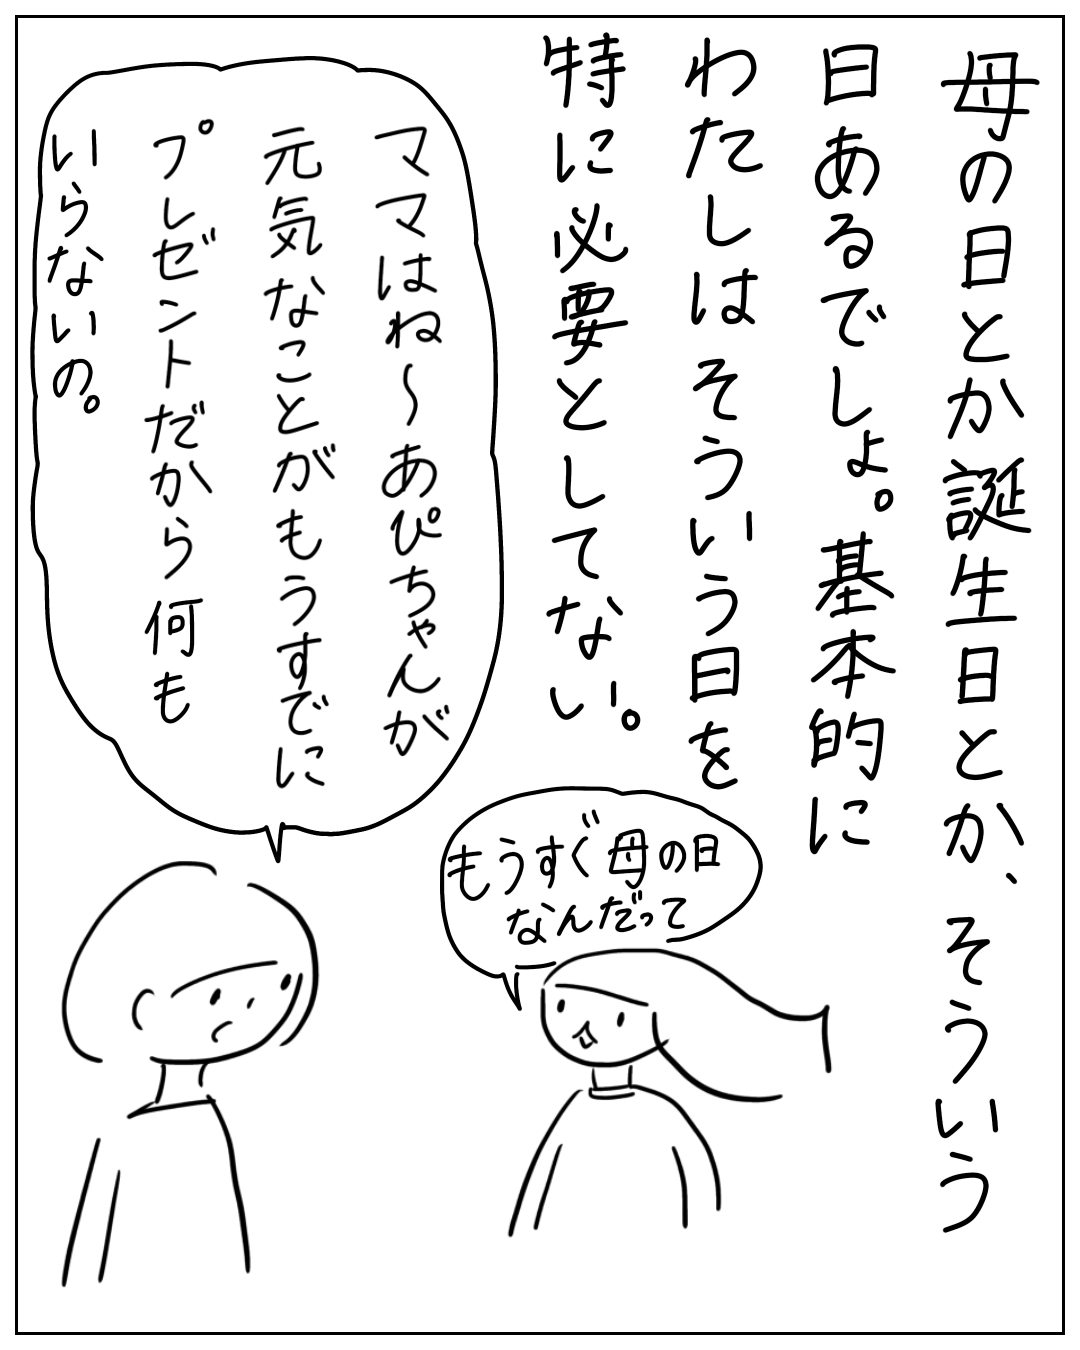 母の日とか誕生日とか、そういう
日あるでしょ。基本的に
わたしはそういう日を
特に必要としてない。
もうすぐ母の日
なんだって
ママはね〜あぴちゃんが
元気なことがもうすでに
プレゼントだから何も
いらないの。